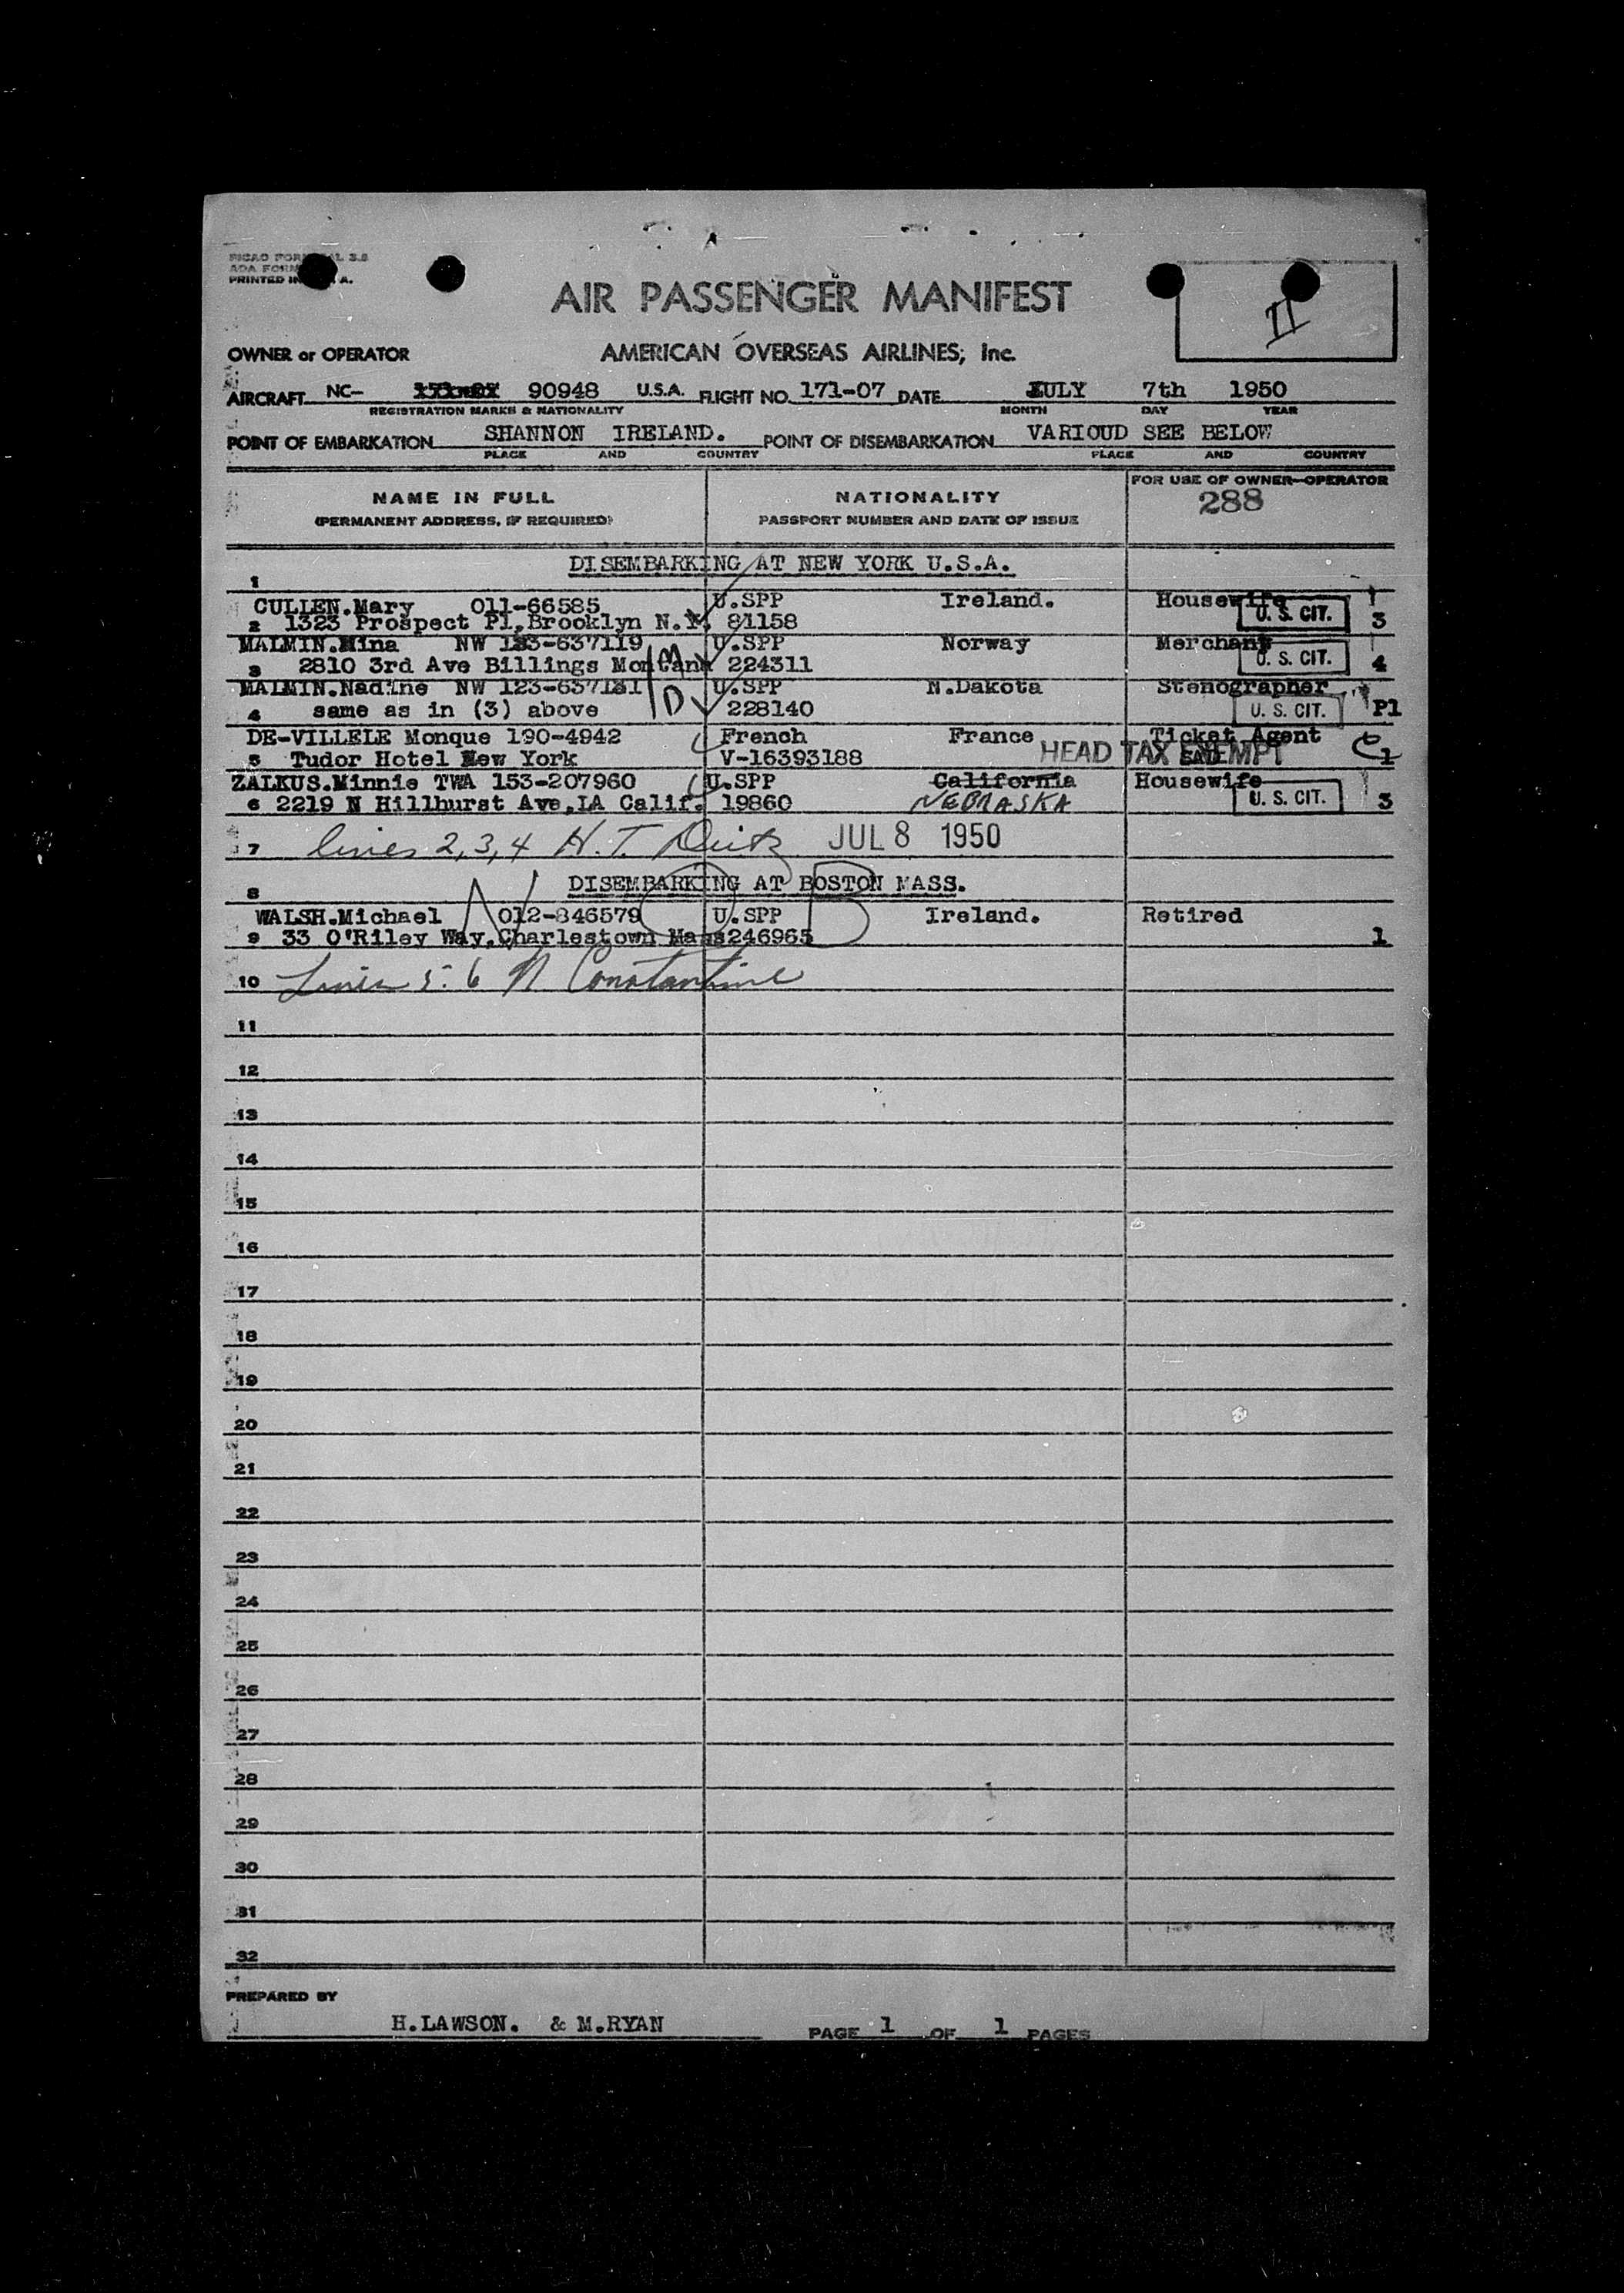 PRINTED IN
AIR PASSENGER MANIFEST
II
OWNER or OPERATOR AMERICAN OVERSEAS AIRLINES, Inc.
AIRCRAFT NC- 90948 U.S.A. FLIGHT NO. 171-07 DATE JULY 7th 1950
REGISTRATION MARKS & NATIONALITY MONTH DAY YEAR
POINT OF EMBARKATION SHANNON IRELAND. POINT OF DISEMBARKATION VARIOUD SEE BELOW
PLACE AND COUNTRY PLACE AND COUNTRY
NAME IN FULL NATIONALITY FOR USE OF OWNER-OPERATOR
(PERMANENT ADDRESS, IF REQUIRED) PASSPORT NUMBER AND DATE OF ISSUE 288
DISEMBARKING AT NEW YORK U.S.A.
1
CULLEN.Mary 011-66585 U.SPP Ireland. Housewife U. S. CIT.
2 1323 Prospect Pl,Brooklyn N.Y. 81158 3
MALMIN.Mina NW 133-637119 U.SPP Norway Merchant U. S. CIT.
3 2810 3rd Ave Billings Montana 224311 4
MALMIN.Nadine NW 123-637131 U.SPP N.Dakota Stenographer
4 same as in (3) above 228140 U. S. CIT. P1
DE-VILLELE Monque 190-4942 French France Ticket Agent
5 Tudor Hotel New York V-16393188 HEAD TAX EXEMPT 1
ZALKUS.Minnie TWA 153-207960 U.SPP California Housewife
6 2219 N Hillhurst Ave,LA Calif. 19860 NEBRASKA U. S. CIT. 3
7 lines 2,3,4 H.T. JUL 8 1950
8 DISEMBARKING AT BOSTON MASS.
WALSH.Michael 012-846579 U.SPP Ireland. Retired
9 33 O'Riley Way,Charlestown Mass 246965 1
10 Lines 5-6 N Constantine
11
12
13
14
15
16
17
18
19
20
21
22
23
24
25
26
27
28
29
30
31
32
PREPARED BY
H.LAWSON. & M.RYAN PAGE 1 OF 1 PAGES